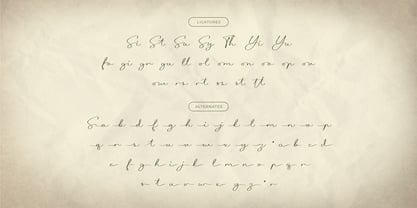 LIGATURES
Si St Su Sy Th Yi Yu
fo gi gr gu ll ol om on oo op ou
ow rs rt ss st tt
ALTERNATES
S a b d f g h i j k l m n o p
q r s t u v w x y z a b c d
e f g h k l m n o p q r
s t u v w x y z